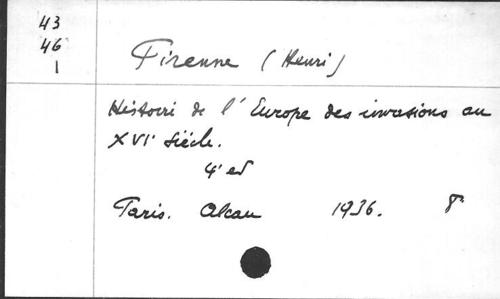 43
46
1
Pirenne (Henri)
Histoire de l'Europe des invasions au
XVIe siècle.
4e ed
Paris. Alcan 1936. 8°